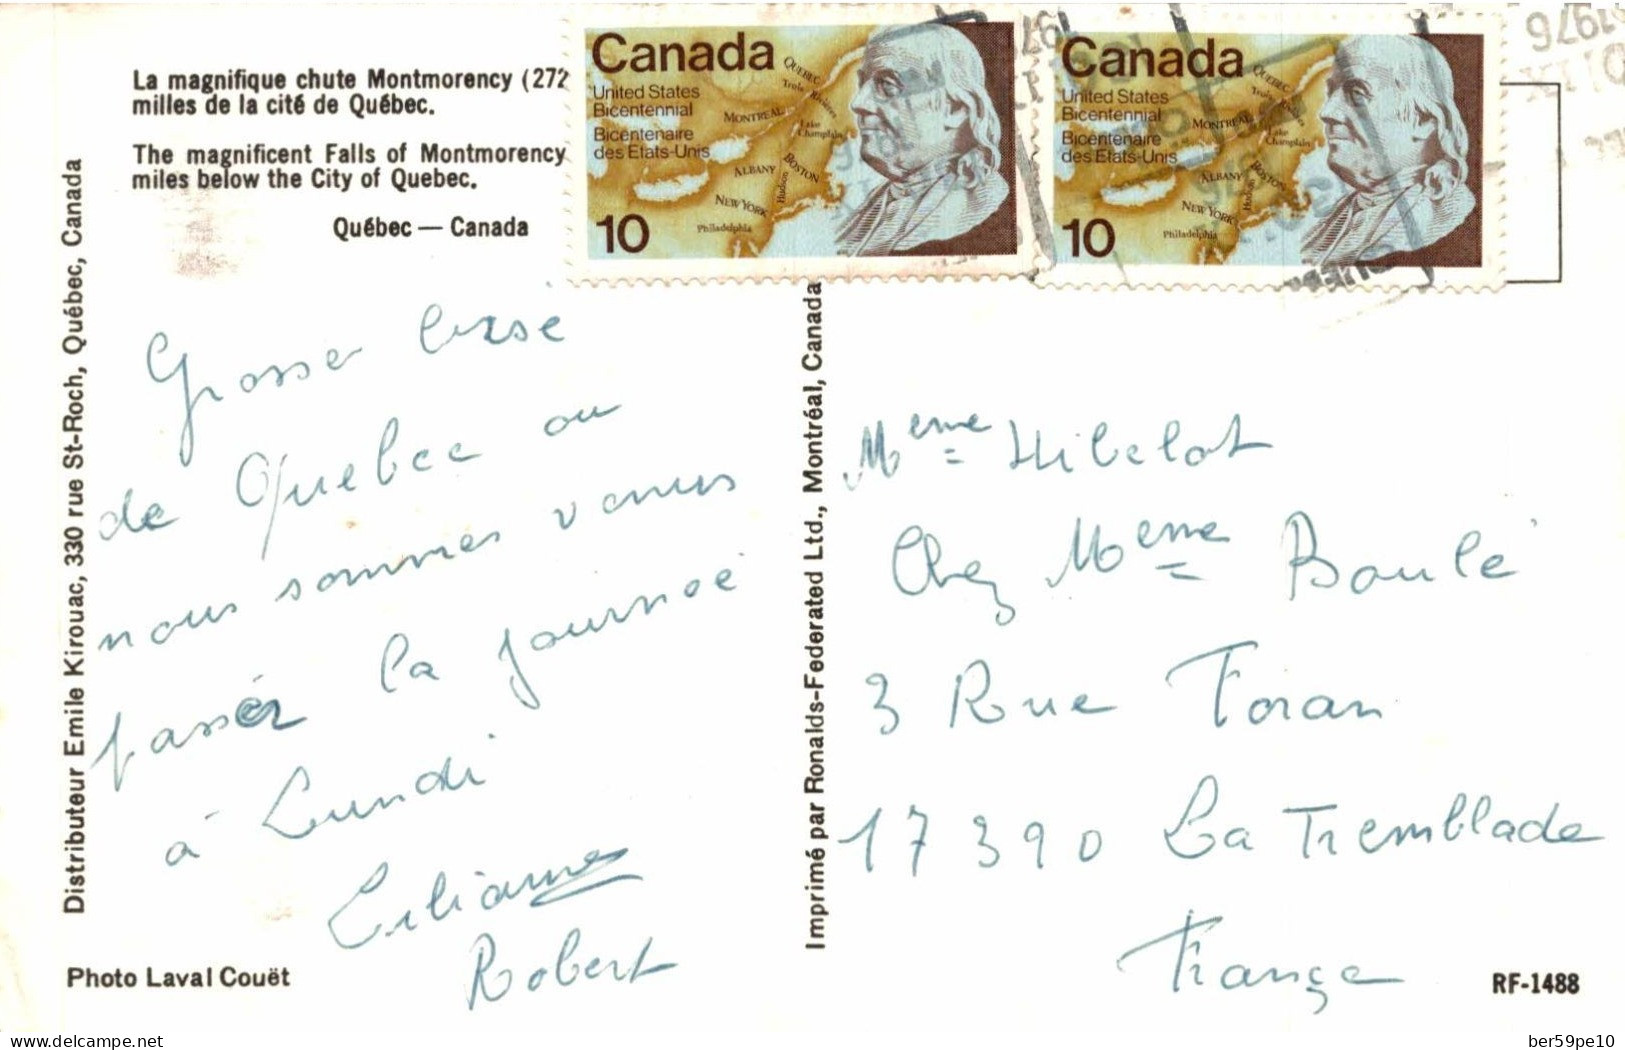 La magnifique chute Montmorency (272
milles de la cité de Québec.
The magnificent Falls of Montmorency
miles below the City of Quebec.
Québec — Canada
Canada
United States
Bicentennial
Bicentenaire
des États-Unis
10
QUEBEC
Trois-Rivières
MONTREAL
Lake
Champlain
ALBANY
BOSTON
Hudson
NEW YORK
Philadelphia
Canada
United States
Bicentennial
Bicentenaire
des États-Unis
10
QUEBEC
Trois-Rivières
MONTREAL
Lake
Champlain
ALBANY
BOSTON
Hudson
NEW YORK
Philadelphia
1976
Distributeur Emile Kirouac, 330 rue St-Roch, Québec, Canada
Grosse bise
de Quebec ou
nous sommes venus
passer la journeé
à Lundi
Liliane
Robert
Photo Laval Couët
Imprimé par Ronalds-Federated Ltd., Montréal, Canada
Meme Hibelot
Chez Meme Boulé
3 Rue Foran
17390 La Tremblade
France
RF-1488
ber59pe10